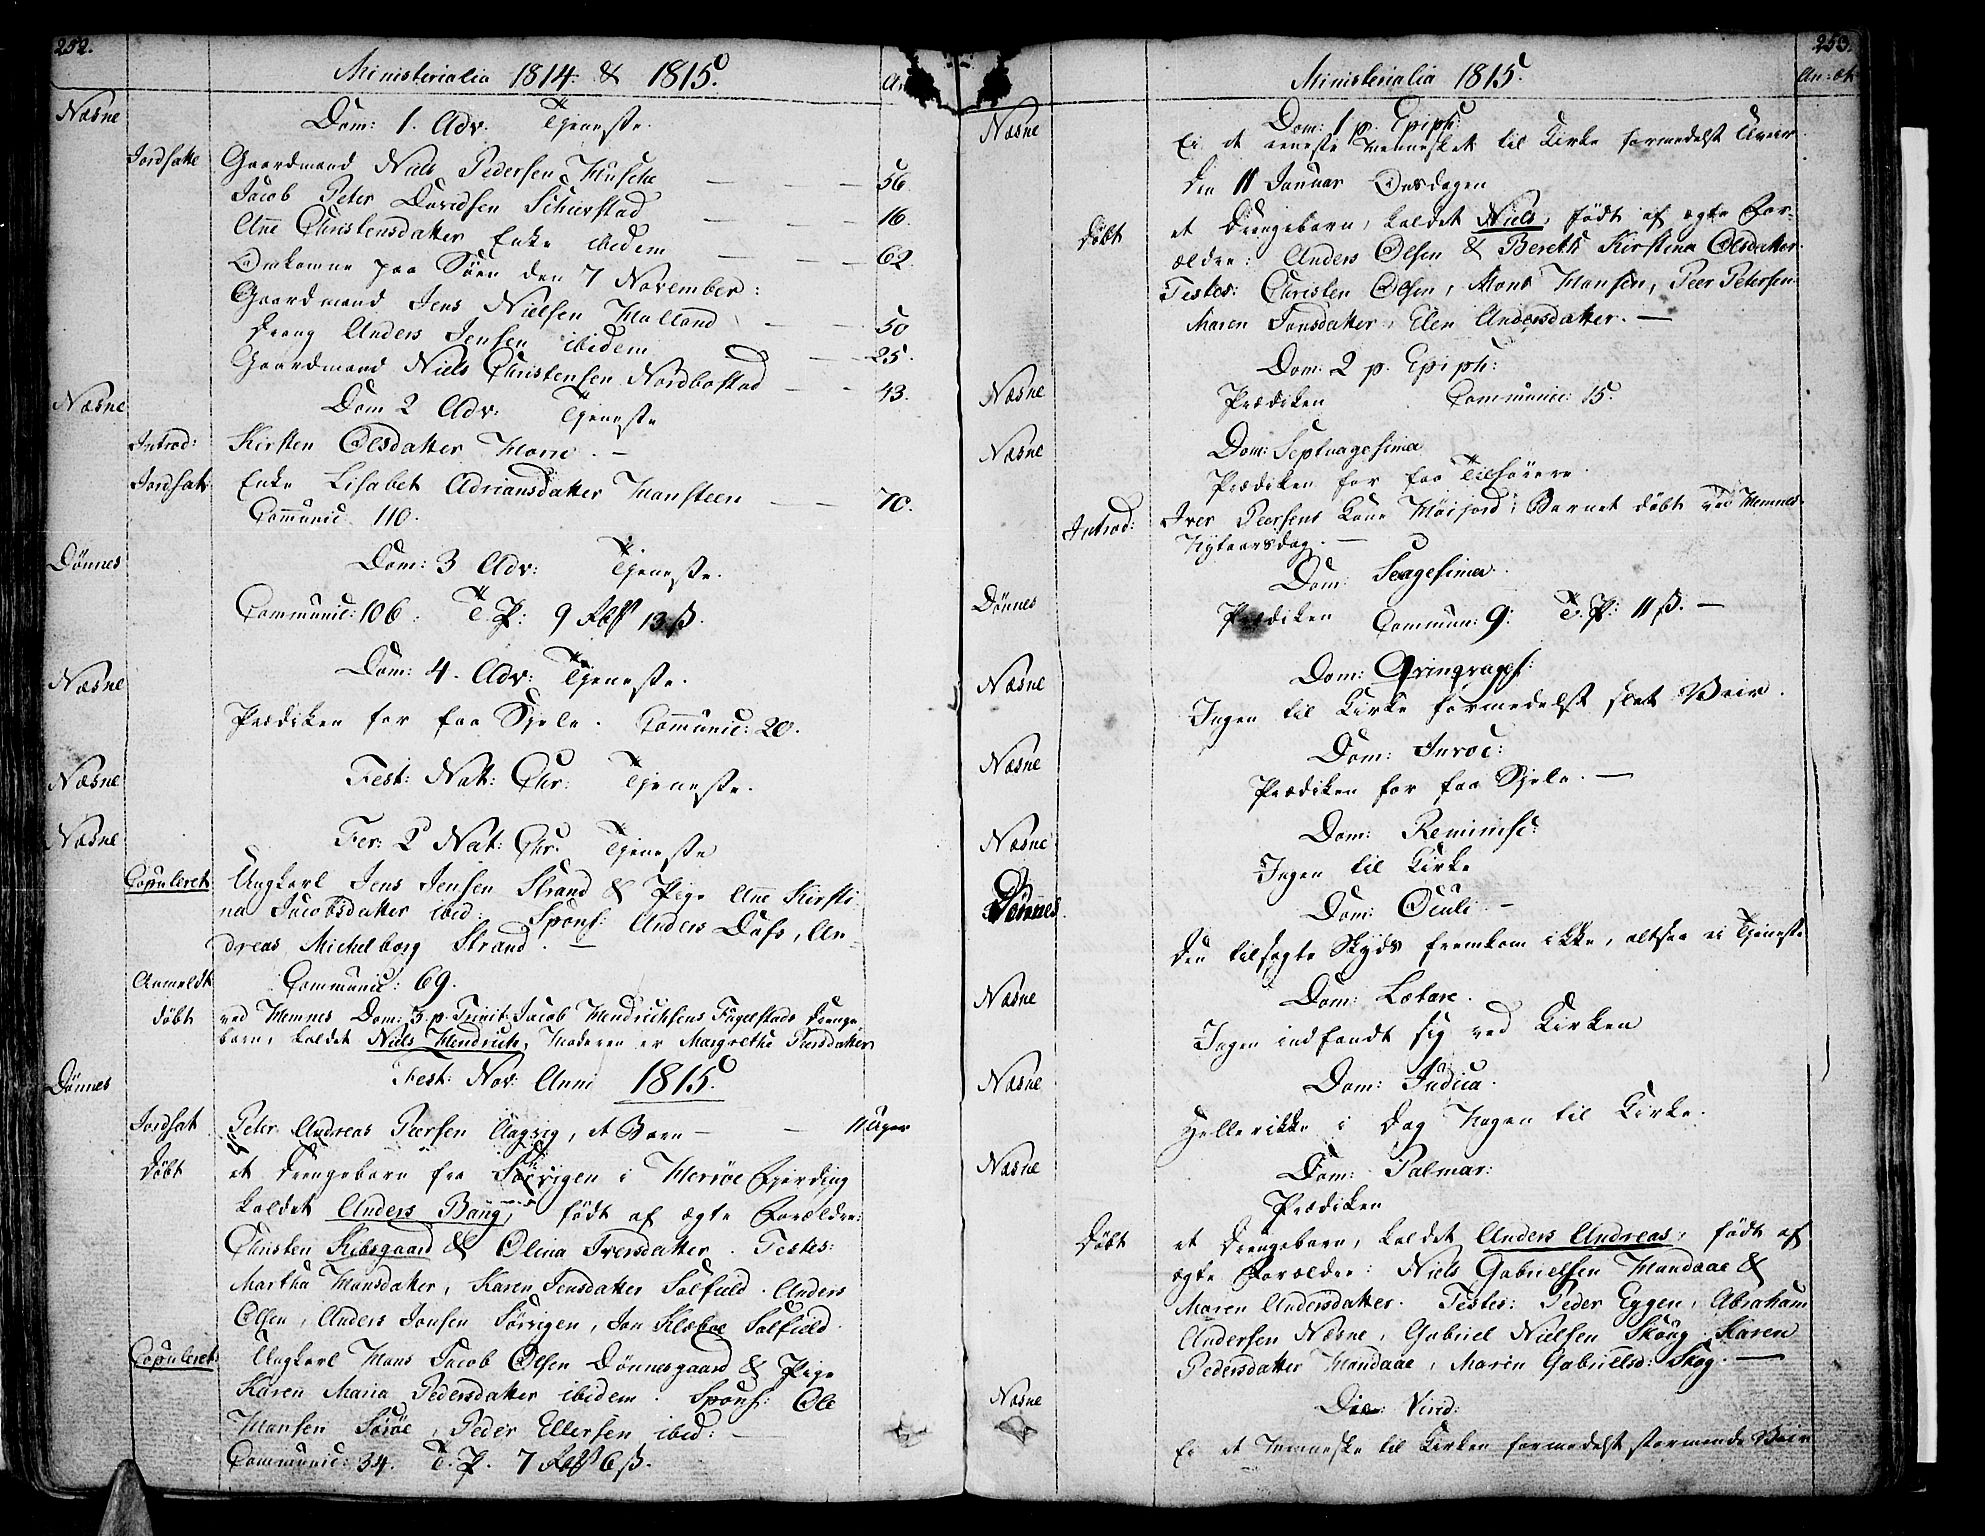 252.
Ministerialia 1814 & 1815.
Næsne
Dom: 1. Adv. Tjeneste.
Jordsatte Gaardmand Niels Pedersen Husebe — — — 56
Jacob Peter Davidsen Schierstad — — 16.
Ane Christensdatter Enke ibidem — — — 62
Omkomne paa Søen den 7 November:
Gaardmand Jens Nielsen Halland — — 50
Dreng Anders Jensen ibidem — 25.
Gaardmand Niels Christensen Nordbostad — — 43.
Næsne
Dom 2 Adv: Tjeneste
Introd: Kirsten Olsdatter —
Jordsat Enke Lisabet Adriansdatter Hansteen — — 70.
Communic. 110.
Dønnes
Dom: 3 Adv: Tjeneste.
Communic: 106. T. P: 9 13 ß.
Næsne
Dom: 4. Adv: Tjeneste.
Prædiken for faa Sjele. Communic: 20.
Næsne
Fest: Nat: Chr: Tjeneste.
Næsne
Fer: 2 Nat: Chr. Tjeneste
Copuleret Ungkarl Jens Jensen Strand & Pige Ane Kirsti
na Jacobsdatter ibid: Spons: Anders Dass, An-
dreas Michelborg Strand. —
Communic: 69.
Anmeldt
døbt ved Hemnes Dom: 3. p. Trinit: Jacob Hendrichsens Fugelstads Drenge
barn, kaldet Niels Hendrich, Moderen er Margrethe
Dønnes
Fest: Nov: Anni 1815.
Jordsat Peter Andreas Peersen Aagvig, et Barn — — 11 Uger
Døbt et Drengebarn fra Sørvigen i Herrøe Fjerding
kaldet Anders Bang, født af ægte Forældre:
Christen Kibsgaard & Olina Iversdatter. Testes:
Martha Hansdatter, Karen Jensdatter Salfield. Anders
Olsen, Anders Jonsen Sørvigen, Jon Klæboe Salfield.
Copuleret Ungkarl Hans Jacob Olsen Dønnesgaard & Pige
Karen Maria Pedersdatter ibidem. Spons: Ole
Hansen, Peder Ellersen ibid: —
Communic: 34. T. P. 7 6 ß.
253.
Ministerialia 1815.
An: æt:
Næsne
Dom: 1 p. Epiph:
Ei et eneste Menneske til Kirke formedelst Uveir.
Den 11 Januar Onsdagen
Døbt et Drengebarn, kaldet Niels, født af ægte For-
ældre: Anders Olsen & Bereth Kirstina Olsdatter.
Testes: Christen Olsen, Mons Hansen, Peer Petersen
Maren Jonsdatter, Elen Andersdatter. —
Næsne
Dom: 2 p. Epiph:
Prædiken Communic: 15.
Næsne
Dom: Septuagesima
Prædiken for faa Tilhørere.
Introd: Iver Peersens Kone Barnet døbt ved Hemnes
Nytaarsdag. —
Dønnes
Dom: Sexagesima.
Prædiken Commun: 9: T. P: 11 ß. —
Næsne
Dom: Qvinqvages:
Ingen til Kirke formedelst slet Veir.
Næsne
Dom: Invoc:
Prædiken for faa Sjele. —
Næsne
Dom: Reminisc:
Ingen til Kirke
Dønnes
Dom: Oculi —
Den tilsagte Skyds fremkom ikke, altsaa ei Tjeneste
Næsne
Dom: Lætare.
Ingen indfandt sig ved Kirken
Næsne
Dom: Judica.
Heller ikke i Dag Nogen til Kirke.
Næsne
Dom: Palmar:
Prædiken
Døbt et Drengebarn, kaldet Anders Andreas, født af
ægte Forældre: Niels Gabrielsen Handaae &
Maren Andersdatter. Testes: Peder Eggen, Abraham
Andersen Næsne, Gabriel Nielsen Skoug. Karen
Pedersdatter Handaae, Maren Gabrielsd: Skog. —
Næsne
Die: Virid:
Ei et Menneske til Kirken formedelst stormende Veir